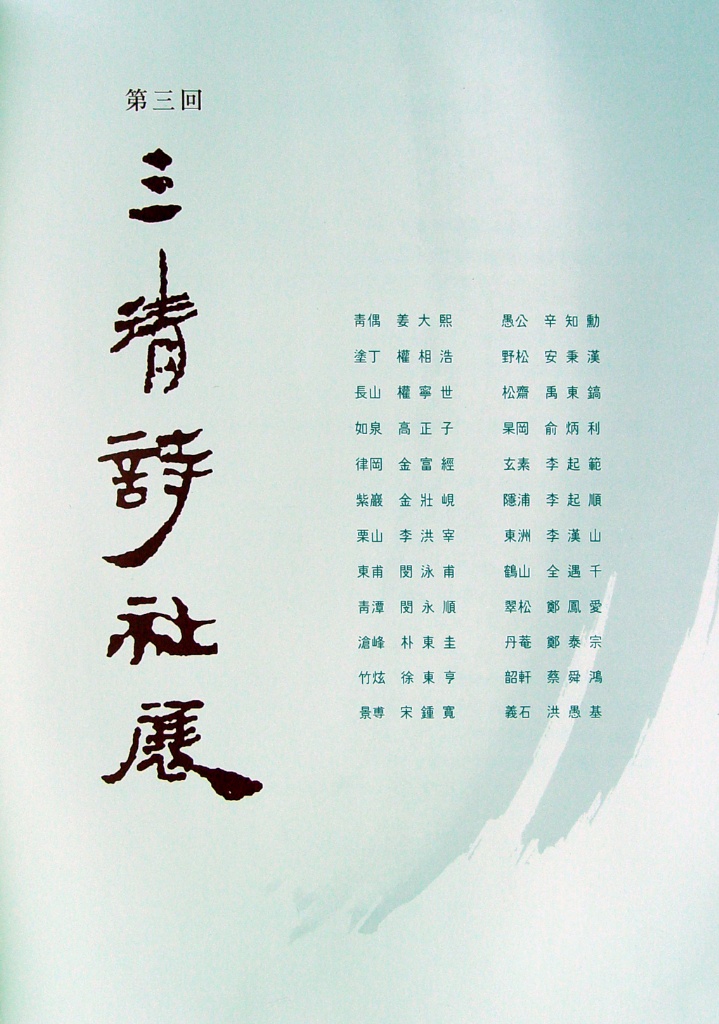 第三回
三清詩社展
靑偶 姜大熙
塗丁 權相浩
長山 權寧世
如泉 高正子
律岡 金富經
紫巖 金壯峴
栗山 李洪宰
東甫 閔泳甫
靑潭 閔永順
滄峰 朴東圭
竹炫 徐東亨
景專 宋鍾寬
愚公 辛知勳
野松 安秉漢
松齋 禹東鎬
杲岡 兪炳利
玄素 李起範
隱浦 李起順
東洲 李漢山
鶴山 全遇千
翠松 鄭鳳愛
丹菴 鄭泰宗
韶軒 蔡舜鴻
義石 洪愚基